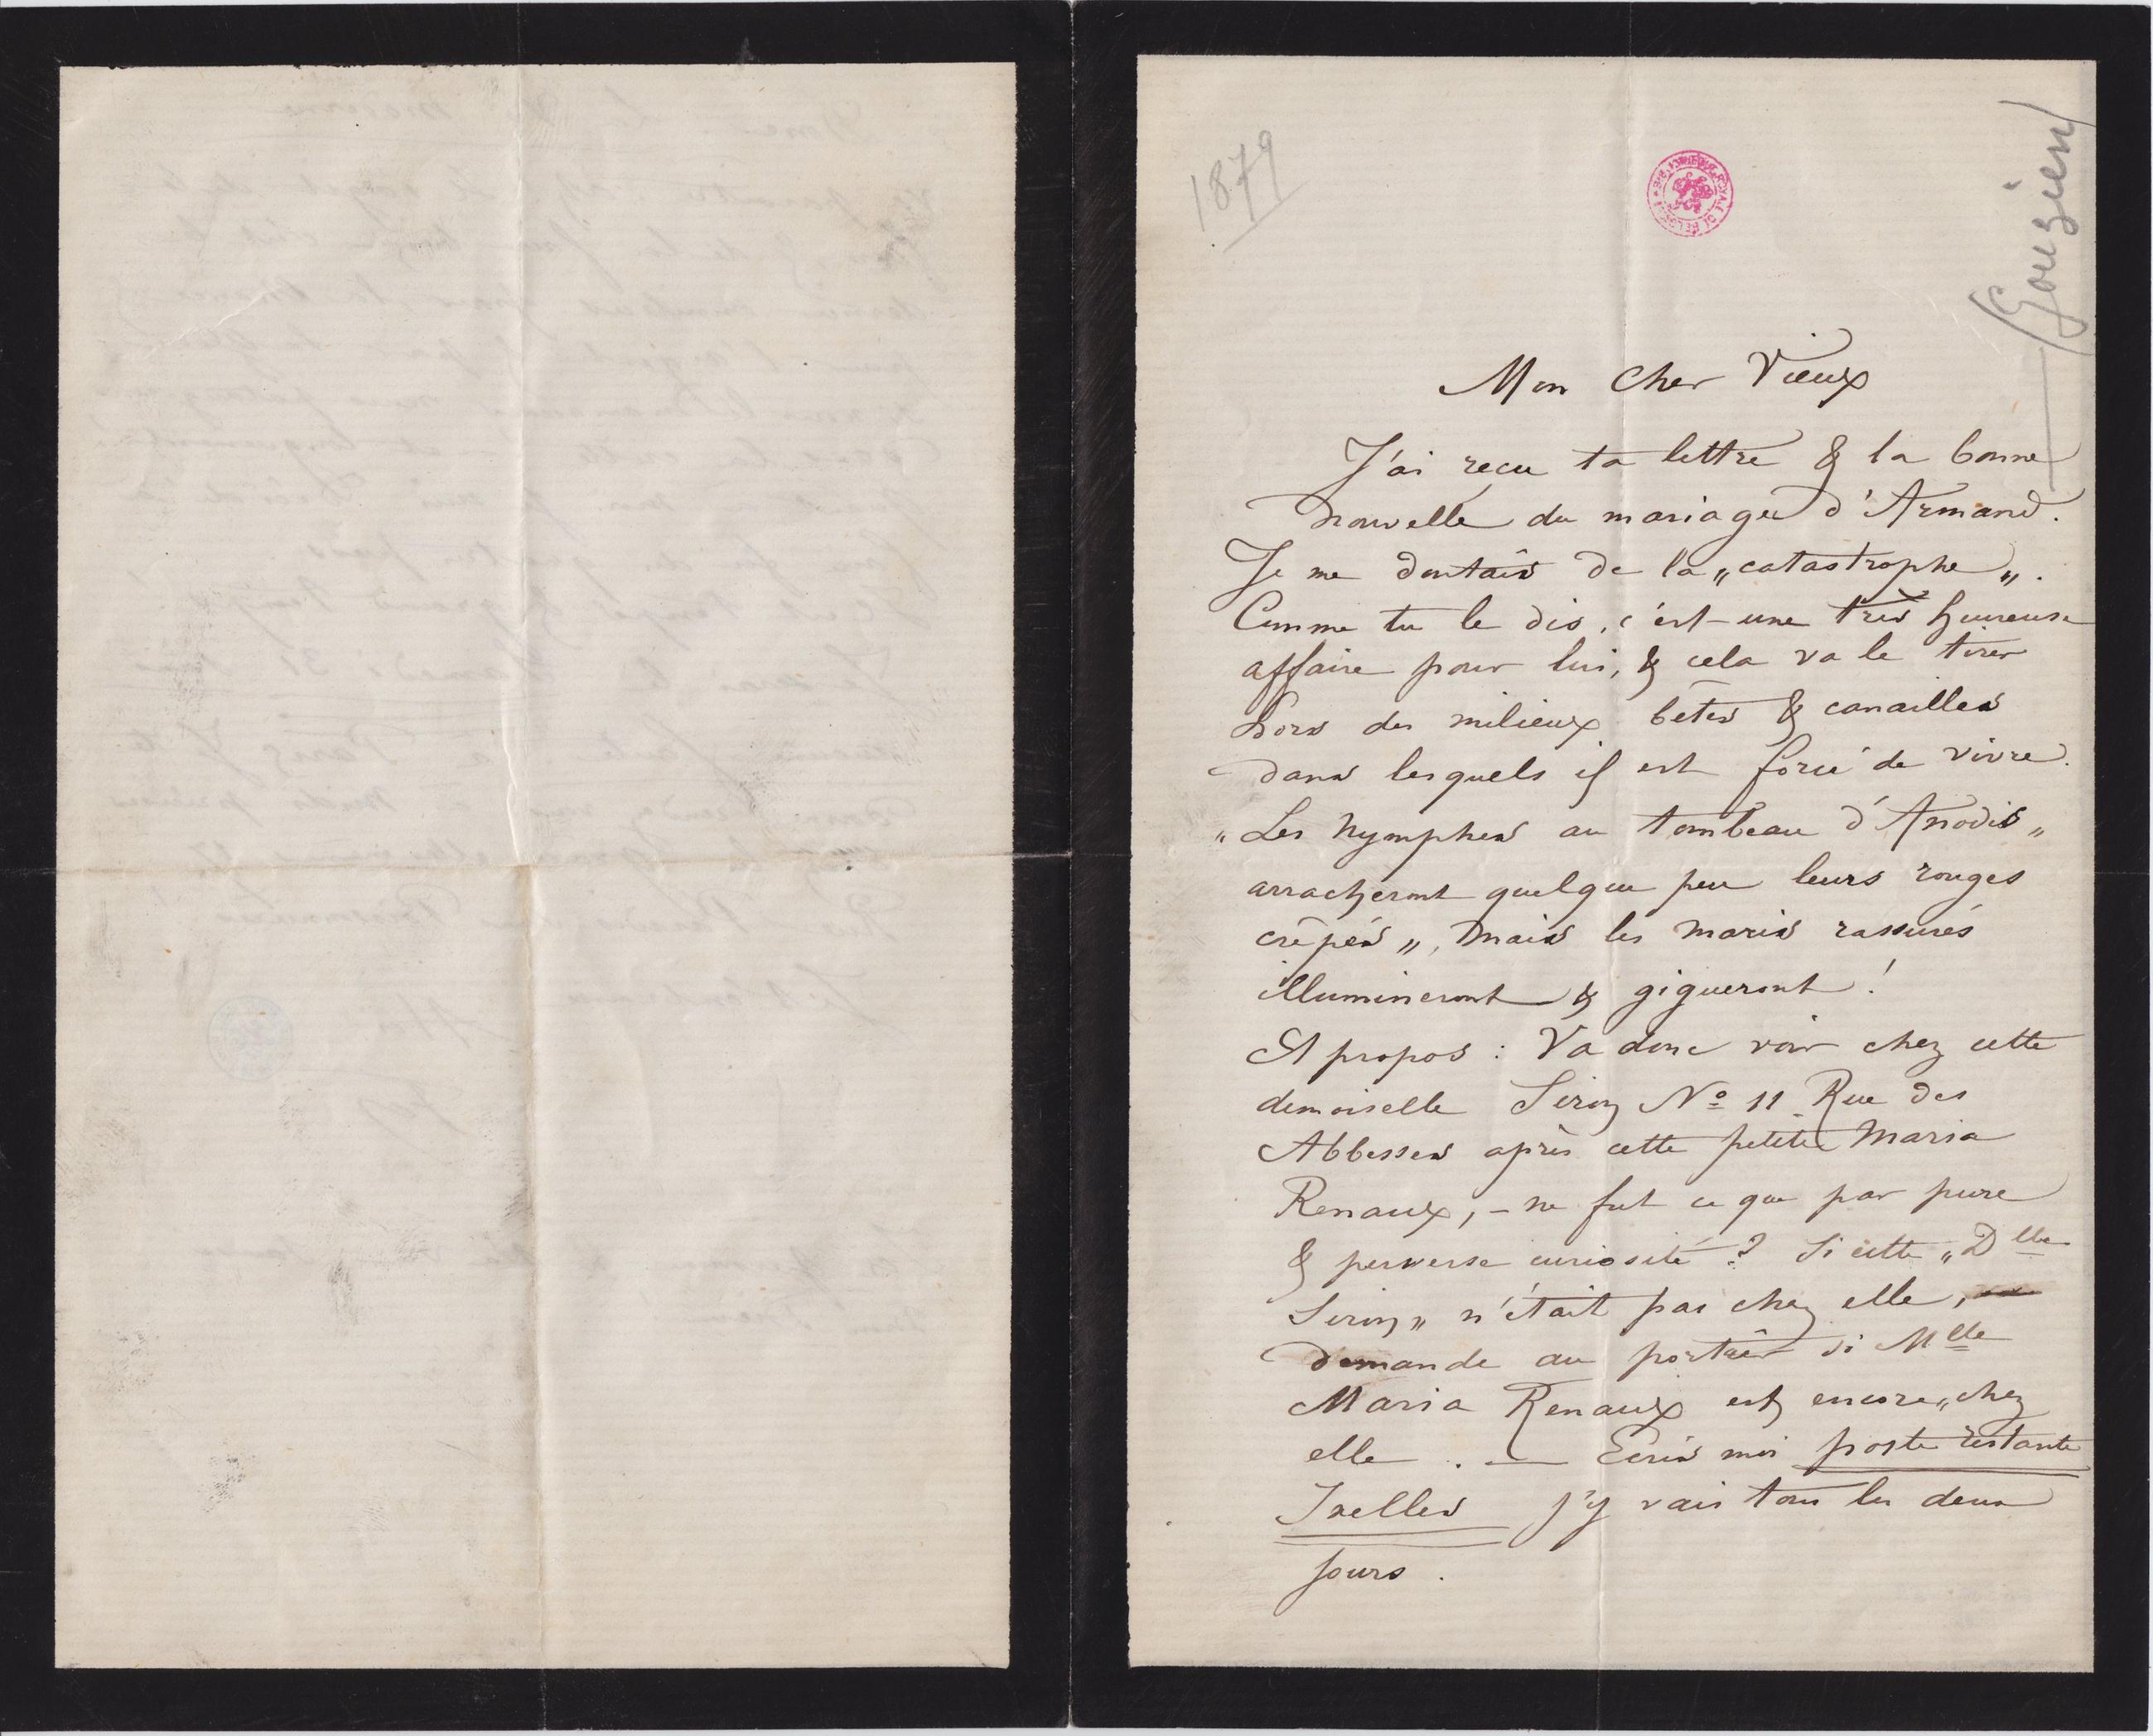 1879
(Gouzien)
Mon Cher Vieux
J'ai reçu ta lettre & la bonne
nouvelle du mariage d'Armand.
Je me doutais de la „catastrophe„.
Comme tu le dis, c'est une très heureuse
affaire pour lui, & cela va le tirer
hors des milieux bêtes & canailles
dans lesquels il est forcé de vivre.
„Les nymphes au tombeau d'Adonis„
arracheront quelque peu leurs rouges
crêpés„, mais les maris rassurés
illumineront & gigueront !
A propos : Va donc voir chez cette
demoiselle No 11 Rue des
Abbesses après cette petite Maria
Renaux, – ne fut ce que par pure
& perverse curiosité ? Si cette „Dlle
„ n'était pas chez elle,
demande au portier si Mlle
Maria Renaux est encore „chez
elle. — Ecris moi poste restante
Ixelles j'y vais tous les deux
jours.